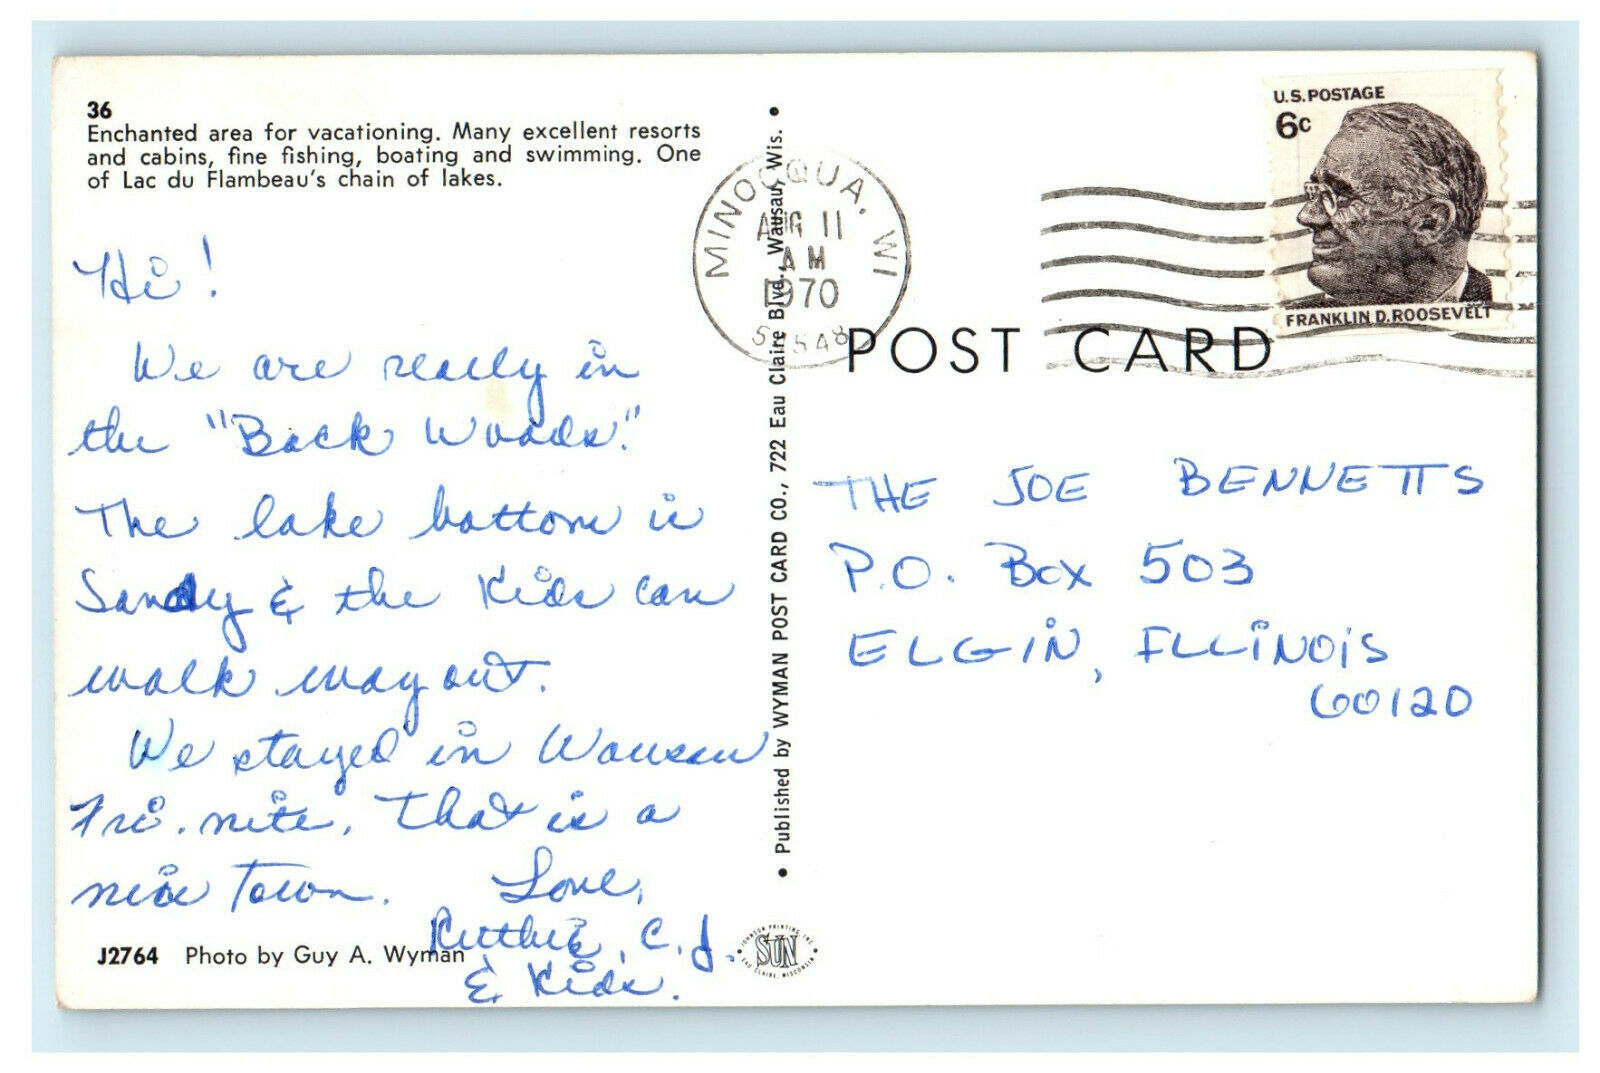 36
Enchanted area for vacationing. Many excellent resorts
and cabins, fine fishing, boating and swimming. One
of Lac du Flambeau's chain of lakes.
Hi!
We are really in
the "Back Woods."
The lake bottom is
Sandy & the Kids can
walk way out.
We stayed in Wausau
Fri. nite. That is a
nice Town. Love,
Ruthie, C.J.
& Kids.
J2764 Photo by Guy A. Wyman
• Published by WYMAN POST CARD CO., 722 Eau Claire Blvd., Wausau, Wis. •
JOHNSON PRINTING, INC.
SUN
EAU CLAIRE, WISCONSIN
MINOCQUA, WI
AUG 11
AM
1970
54548
U.S. POSTAGE
6c
FRANKLIN D. ROOSEVELT
POST CARD
THE JOE BENNETTS
P.O. Box 503
ELGIN, ILLINOIS
60120